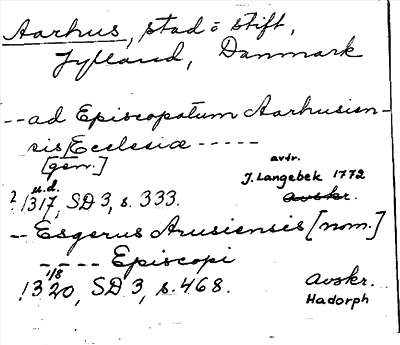 Aarhus, stad o stift,
Jylland, Danmark
-- ad Episcopatum Aarhusien-
sis Ecclesiæ -----
[gen.]
avtr.
J. Langebek 1772
u.d.
? 1317, SD 3, s. 333.
Avskr.
-- Esgerus Arusiensis [nom.]
---- Episcopi
1/8
1320, SD 3, s. 468.
Avskr.
Hadorph